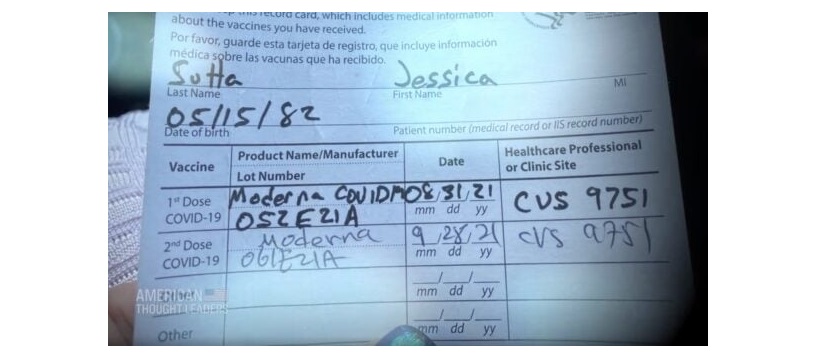 record card, which includes medical information
about the vaccines you have received.
Por favor, guarde esta tarjeta de registro, que incluye información
médica sobre las vacunas que ha recibido.
Sutta Jessica
Last Name First Name MI
05/15/82
Date of birth Patient number (medical record or IIS record number)
Vaccine Product Name/Manufacturer Date Healthcare Professional
Lot Number or Clinic Site
1st Dose Moderna COVID 08 31 21 CVS 9751
COVID-19 052E21A mm dd yy
2nd Dose Moderna 9 /28/ 21 CVS 9751
COVID-19 061E21A mm dd yy
__/__/__
mm dd yy
__/__/__
Other mm dd yy
AMERICAN
THOUGHT LEADERS